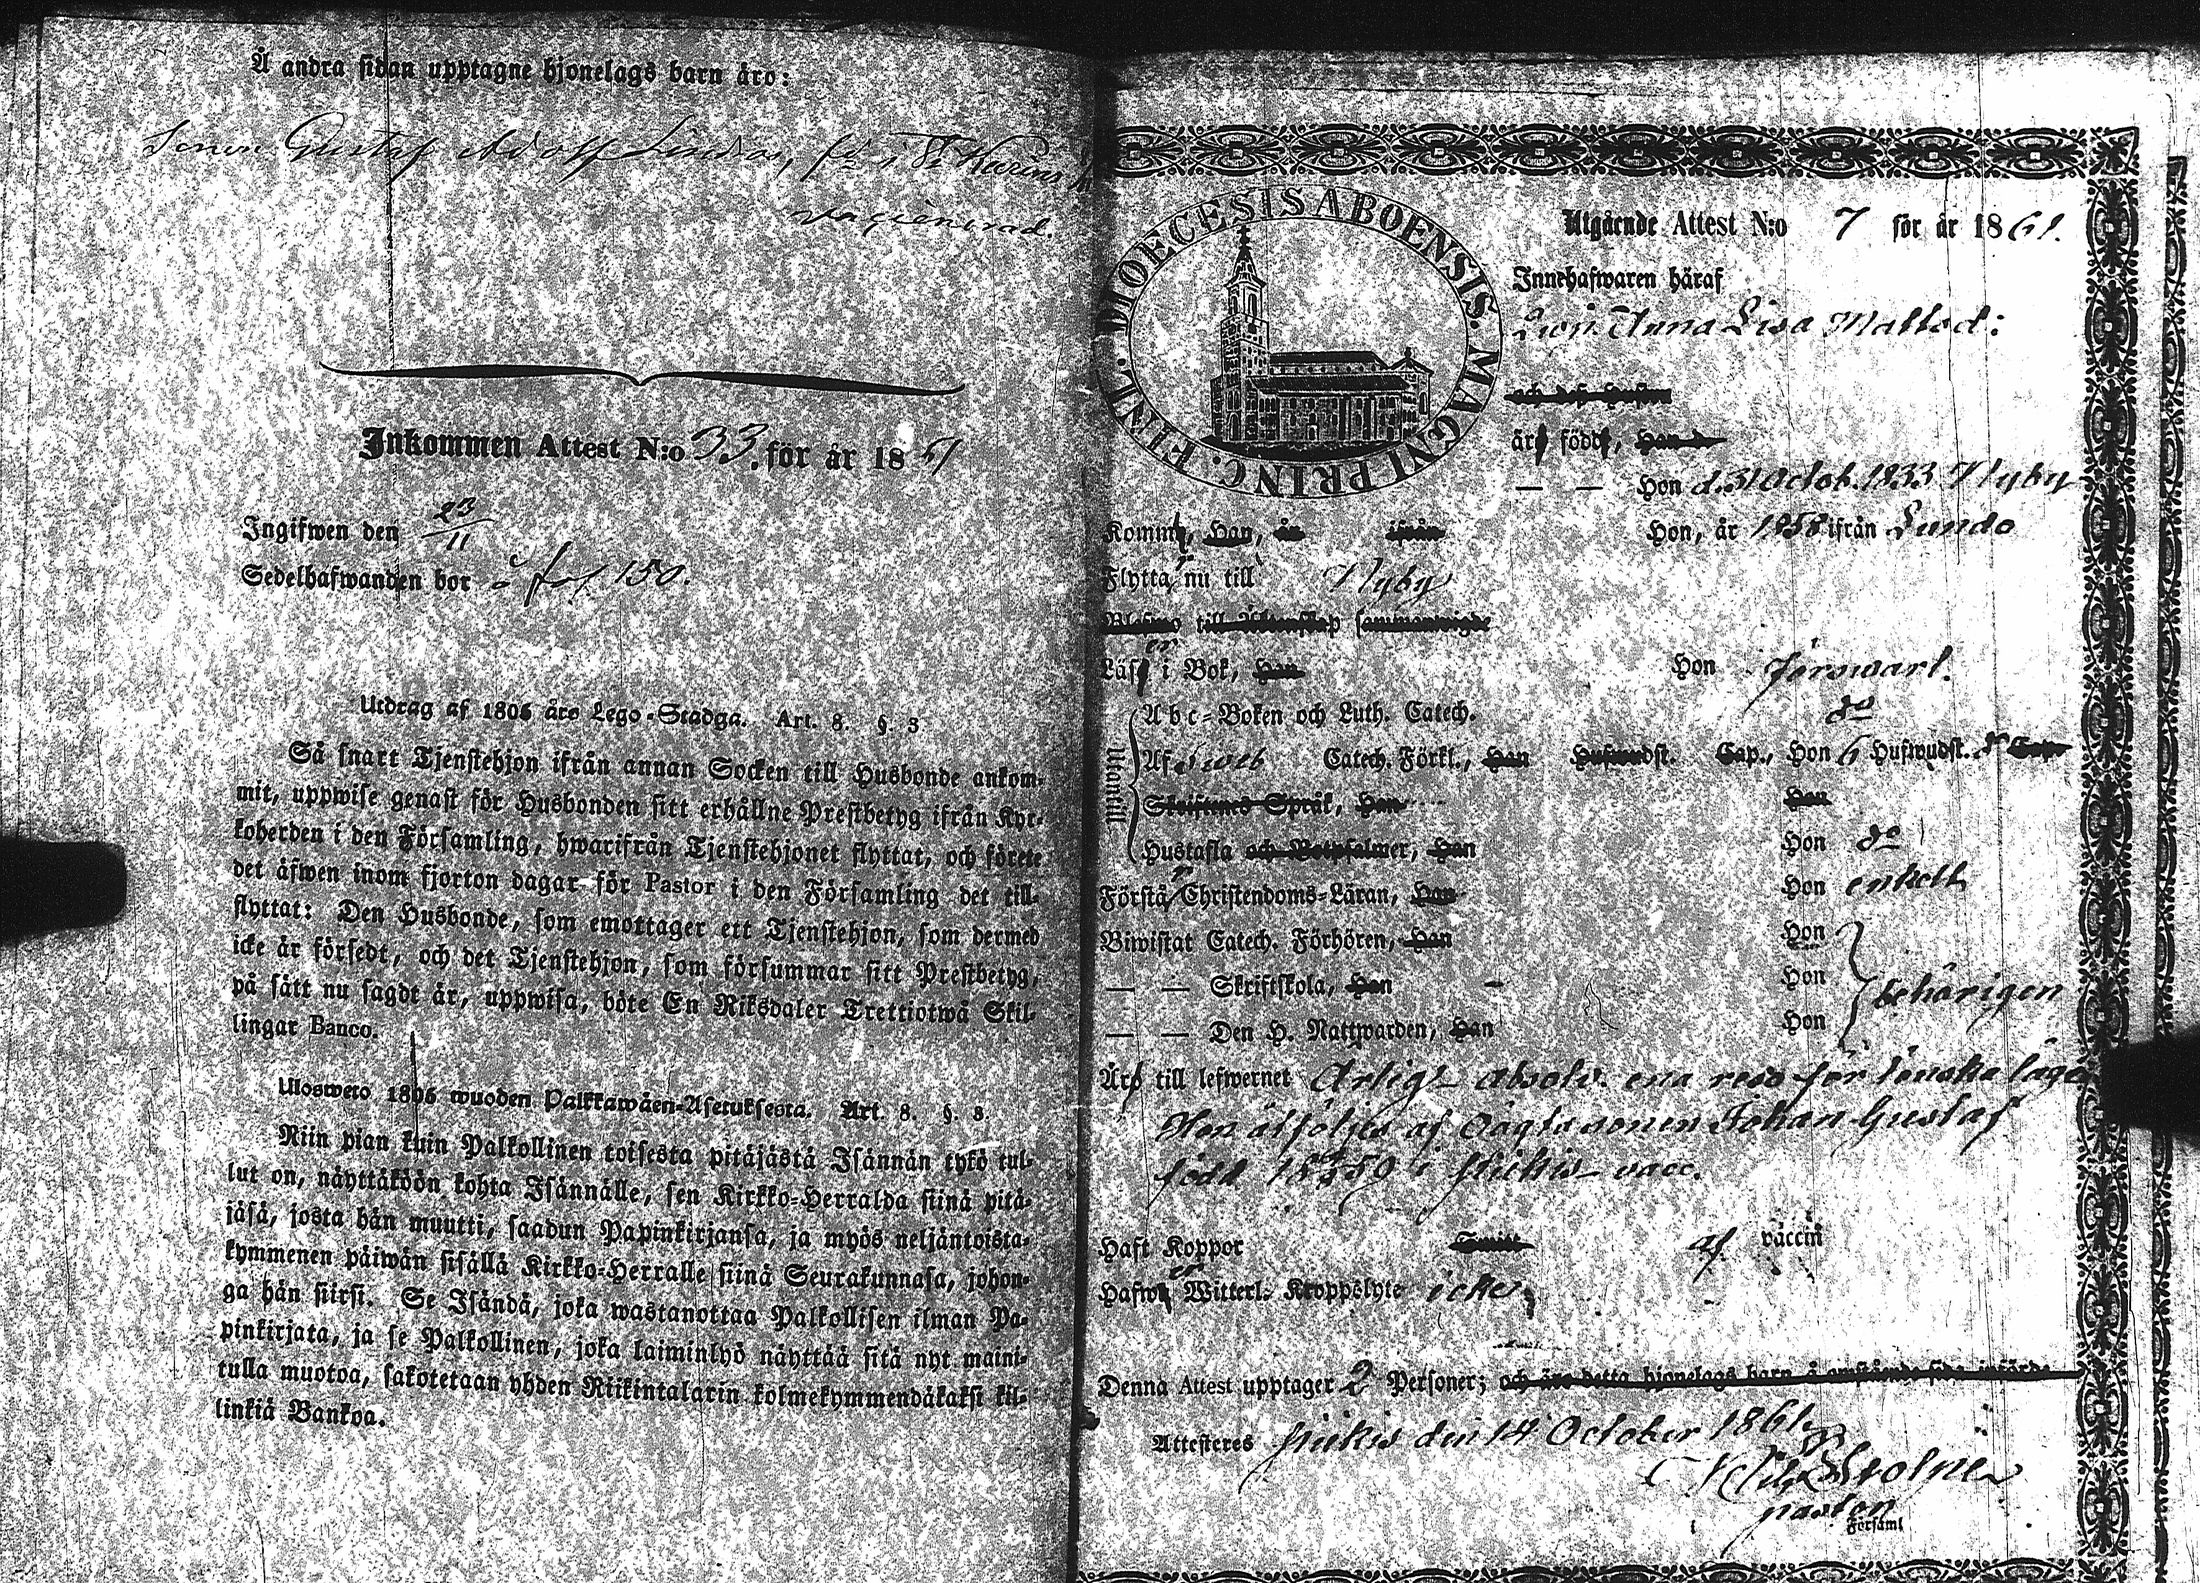 Å andra sidan upptagne hjonelags barn äro:
Sonen Gustaf Adolf Lindros, i St Karins
vaccinerad.
Inkommen Attest N:o 33. för år 1861
Ingifwen den 23/11
Sedelhafwanden bor å fol 150.
Utdrag af 1805 års Lego-Stadga. Art. 8. §. 3
Så snart Tjenstehjon ifrån annan Socken till Husbonde ankom-
mit, uppwise genast för Husbonden sitt erhållne Prestbetyg ifrån Kyr-
koherden i den Församling, hwarifrån Tjenstehjonet flyttat, och förete
det äfwen inom fjorton dagar för Pastor i den Församling det till-
flyttat: Den Husbonde, som emottager ett Tjenstehjon, som dermed
icke är försedt, och det Tjenstehjon, som försummar sitt Prestbetyg,
på sätt nu sagdt är, uppwisa, böte En Riksdaler Trettiotwå Skil-
lingar Banco.
Ulosweto 1805 wuoden Palkkawäen-Asetuksesta. Art. 8. §. 3.
Niin pian kuin Palkollinen toisesta pitäjästä Isännän tykö tul-
lut on, näyttäköön kohta Isännälle, sen Kirkko-Herralda siinä pitä-
jäsä, josta hän muutti, saadun Papinkirjansa, ja myös neljäntoista-
kymmenen päiwän sisällä Kirkko-Herralle siinä Seurakunnasa, johon-
ga hän siirsi. Se Isändä, joka wastanottaa Palkollisen ilman Pa-
pinkirjata, ja se Palkollinen, joka laiminlyö näyttää sitä nyt maini-
tulla muotoa, sakotetaan yhden Riikintalarin kolmekymmendäkaksi kil-
linkiä Bankoa.
DIOECESIS ABOENSIS. MAGNI PRINC. FINL.
Utgående Attest N:o 7 för år 1861.
Innehafwaren häraf
Anna Lisa Mattsd:
och dess Hustru
är född, Han d
— — Hon d. 31 Octob. 1833 Nyby
Kommit, Han, år ifrån Hon, år 1858 ifrån Lundo
Flyttar nu till Nyby
Blefwo till Äktenskap sammanwigde
Läser i Bok, Han Hon försvarl.
Utantill
Abc-Boken och Luth. Catech. do
Af Sweb Catech. Förkl., Han Hufwudst. Cap., Hon 6 Hufwudst. Cap.
Skriftenes Språk, Han Hon
Hustafla och Botpsalmer, Han Hon do
Förstår Christendoms-Läran, Han Hon enkelt
Biwistat Catech. Förhören, Han Hon
— — Skriftskola, Han Hon behörigen
— — Den H. Nattwarden, Han Hon
Är till lefwernet Ärlig absolv. ena reso för lönska läge
Hon åtföljes af oägta sonen Johan Gustaf
född 18 59 i Piikis vacc.
Haft Koppor af vaccin
Hafwer Witterl. Kroppslyte icke
Denna Attest upptager 2 Personer; och äro detta hjonelags barn å omstående sida införde
Attesteres Piikis den 14 October 1861
pastor
i Församl